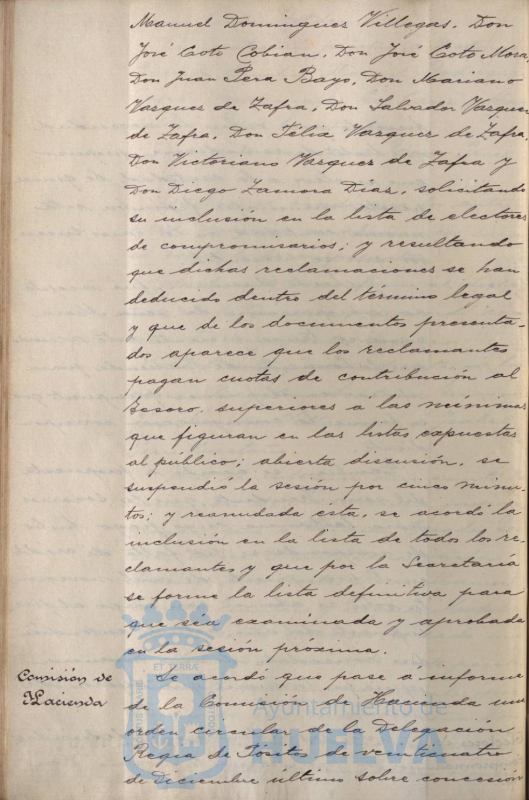 Manuel Dominguez Villegas, Don
José Coto Cobian, Don José Coto Mora,
Don Juan Pera Bayo, Don Mariano
Vazquez de Zafra, Don Salvador Vazquez
de Zafra, Don Félix Vazquez de Zafra,
Don Victoriano Vazquez de Zafra y
Don Diego Zamora Díaz, solicitando
su inclusión en la lista de electores
de compromisarios; y resultando
que dichas reclamaciones se han
deducido dentro del término legal
y que de los documentos presenta-
dos aparece que los reclamantes
pagan cuotas de contribución al
Tesoro, superiores á las mínimas
que figuran en las listas expuestas
al público; abierta discusión, se
suspendió la sesión por cinco minu-
tos; y reanudada ésta, se acordó la
inclusión en la lista de todos los re-
clamantes y que por la Secretaría
se forme la lista definitiva para
que séa examinada y aprobada
en la sesión próxima.
Comisión de
Hacienda
Se acordó que pase a informe
de la Comisión de Hacienda una
orden circular de la Delegación
Regia de Pósitos de veinticuatro
de Diciembre último sobre concesión
ET TERRAE
Ayuntamiento de
HUELVA